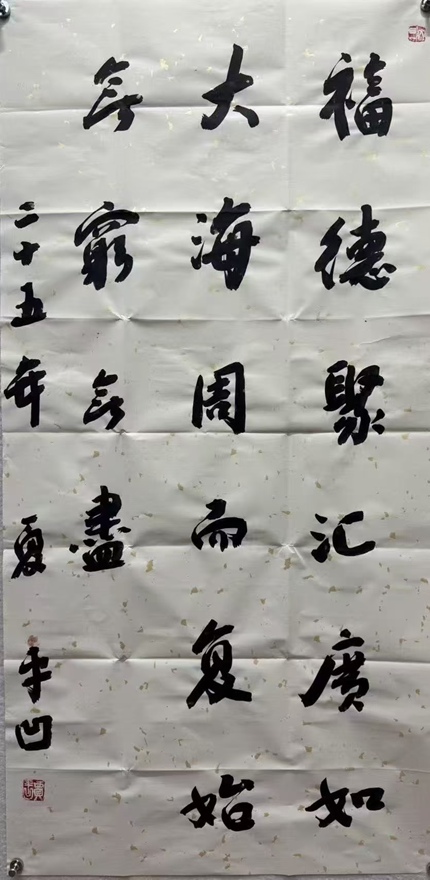 福德聚汇廣如
大海周而复始
无窮无盡
二十五年夏平凹